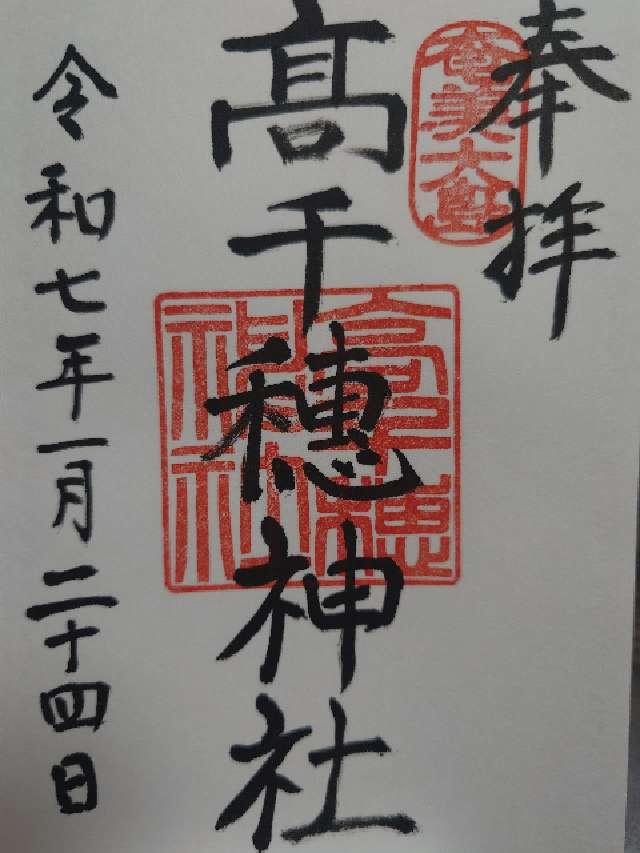 奉拝
奄美大島
髙千穂神社
高千穂神社
令和七年一月二十四日